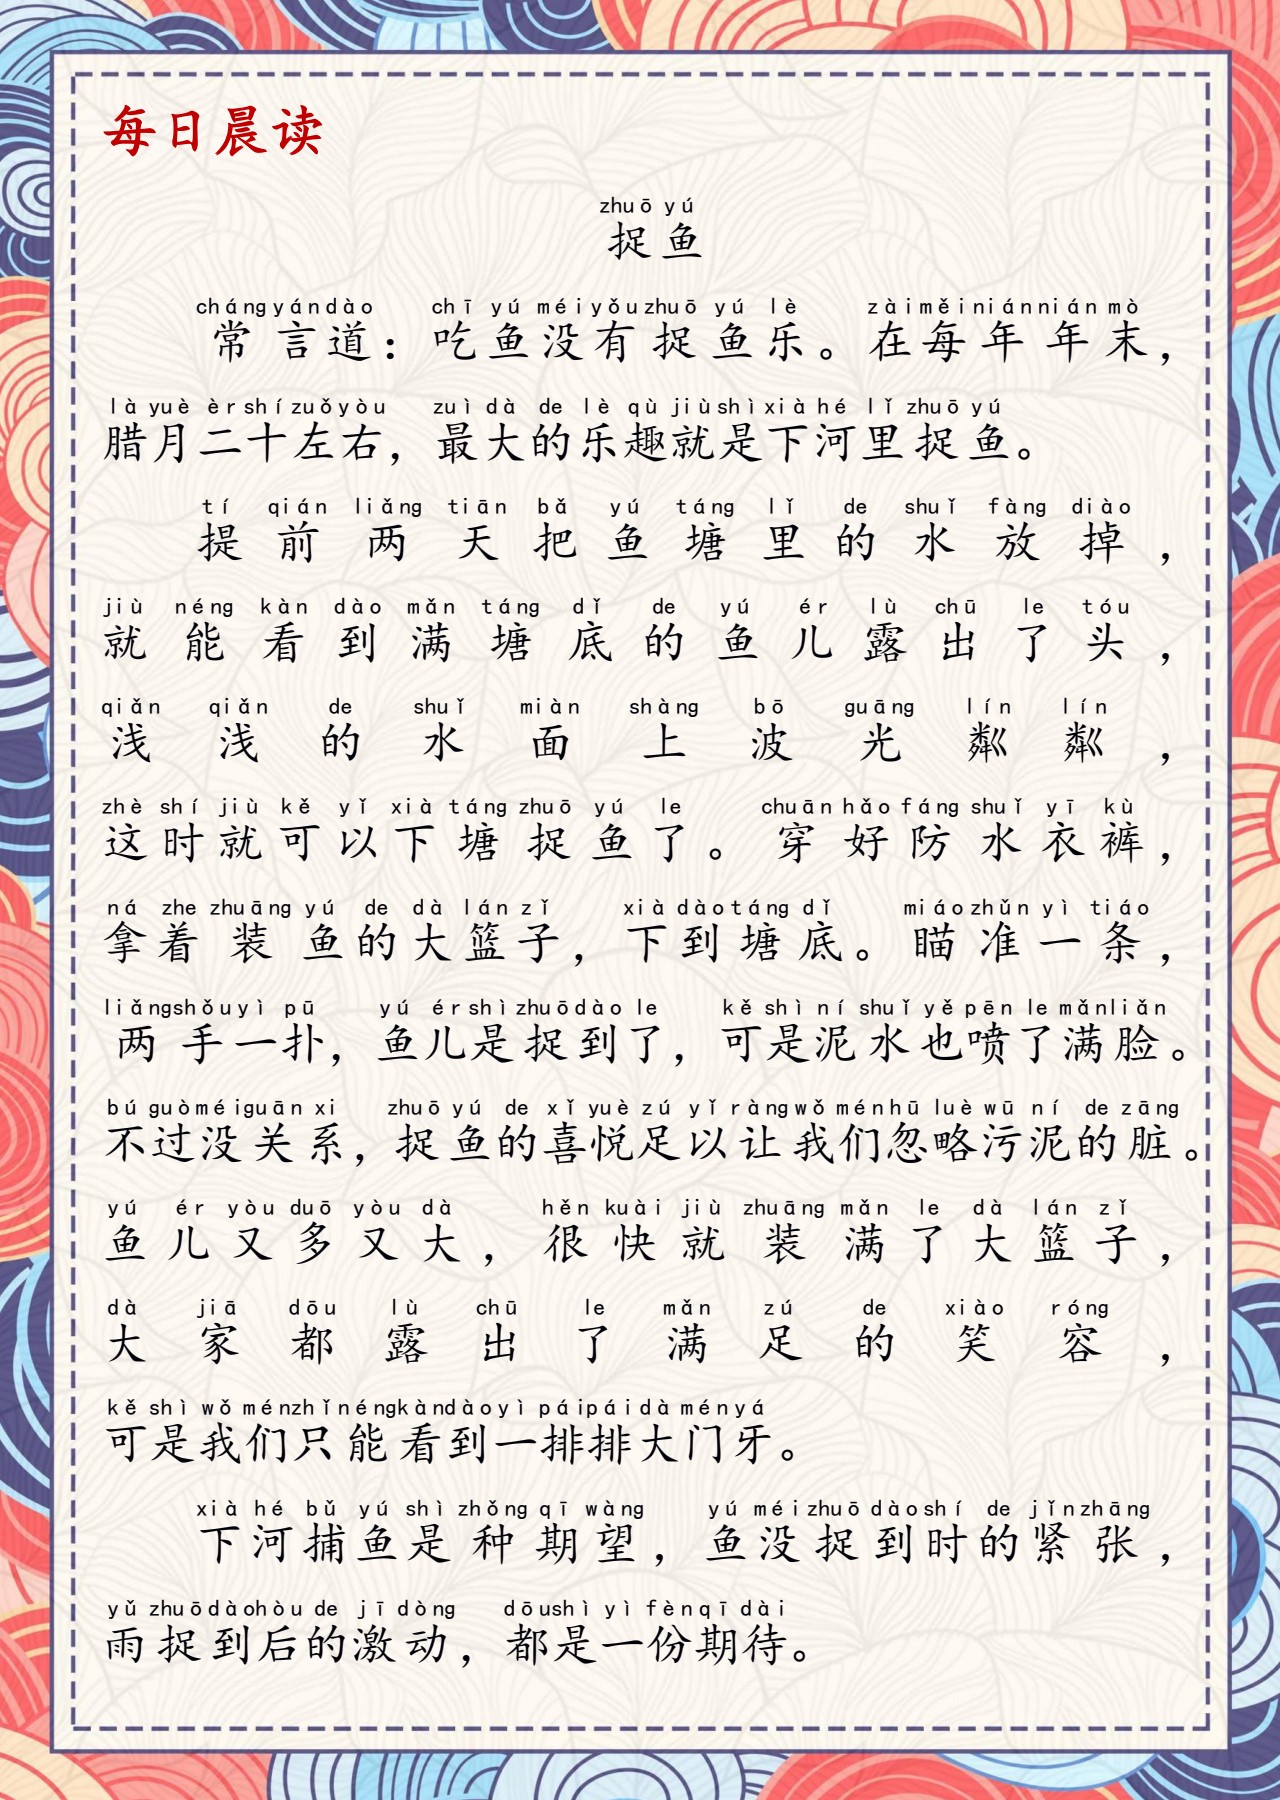 每日晨读
zhuō yú
捉鱼
cháng yán dào chī yú méi yǒu zhuō yú lè zài měi nián nián mò
常言道：吃鱼没有捉鱼乐。在每年年末，
là yuè èr shí zuǒ yòu zuì dà de lè qù jiù shì xià hé lǐ zhuō yú
腊月二十左右，最大的乐趣就是下河里捉鱼。
tí qián liǎng tiān bǎ yú táng lǐ de shuǐ fàng diào
提前两天把鱼塘里的水放掉，
jiù néng kàn dào mǎn táng dǐ de yú ér lù chū le tóu
就能看到满塘底的鱼儿露出了头，
qiǎn qiǎn de shuǐ miàn shàng bō guāng lín lín
浅浅的水面上波光粼粼，
zhè shí jiù kě yǐ xià táng zhuō yú le chuān hǎo fáng shuǐ yī kù
这时就可以下塘捉鱼了。穿好防水衣裤，
ná zhe zhuāng yú de dà lán zǐ xià dào táng dǐ miáo zhǔn yì tiáo
拿着装鱼的大篮子，下到塘底。瞄准一条，
liǎng shǒu yì pū yú ér shì zhuō dào le kě shì ní shuǐ yě pēn le mǎn liǎn
两手一扑，鱼儿是捉到了，可是泥水也喷了满脸。
bú guò méi guān xi zhuō yú de xǐ yuè zú yǐ ràng wǒ mén hū luè wū ní de zāng
不过没关系，捉鱼的喜悦足以让我们忽略污泥的脏。
yú ér yòu duō yòu dà hěn kuài jiù zhuāng mǎn le dà lán zǐ
鱼儿又多又大，很快就装满了大篮子，
dà jiā dōu lù chū le mǎn zú de xiào róng
大家都露出了满足的笑容，
kě shì wǒ mén zhǐ néng kàn dào yì pái pái dà mén yá
可是我们只能看到一排排大门牙。
xià hé bǔ yú shì zhǒng qī wàng yú méi zhuō dào shí de jǐn zhāng
下河捕鱼是种期望，鱼没捉到时的紧张，
yǔ zhuō dào hòu de jī dòng dōu shì yì fèn qī dài
雨捉到后的激动，都是一份期待。